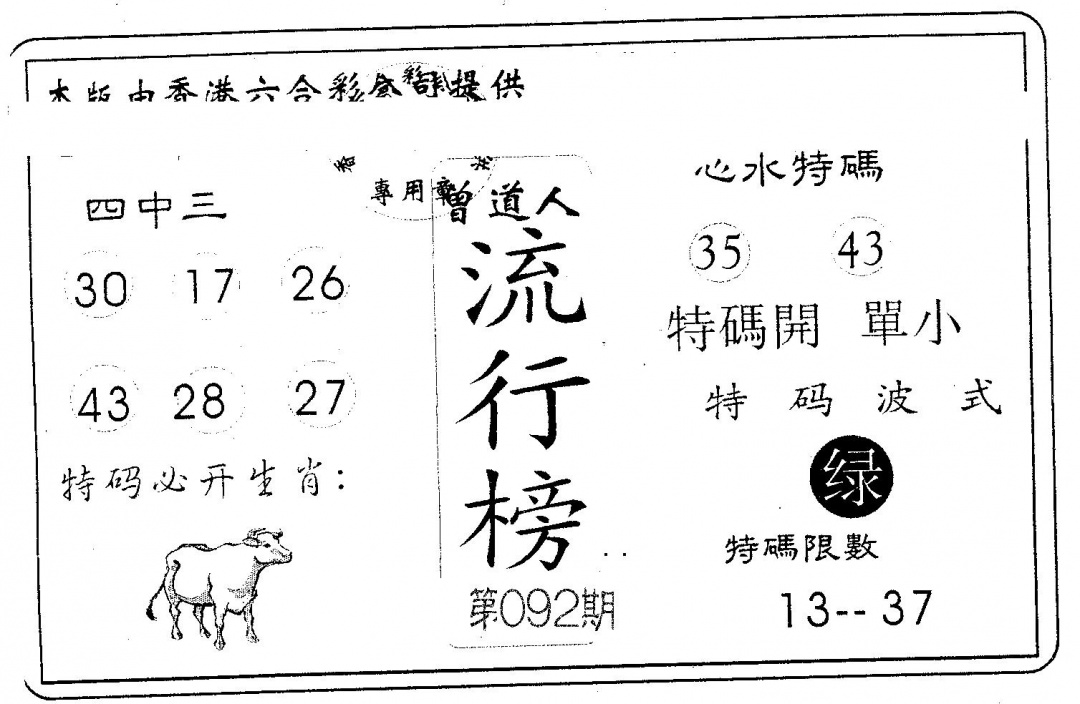 本版由香港六合彩公司提供
彩
香
港
專用章
四中三
30 17 26
43 28 27
特码必开生肖：
曾道人
流行榜
第092期
心水特碼
35 43
特碼開 單小
特码波式
绿
特碼限數
13-- 37